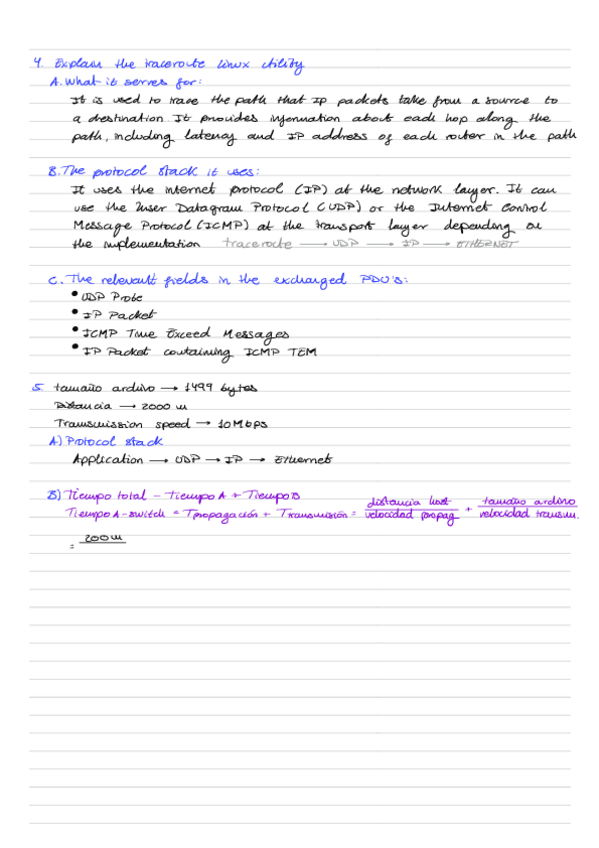 4. Explain the traceroute linux utility
A. What it serves for:
It is used to trace the path that IP packets take from a source to
a destination It provides information about each hop along the
path, including latency and IP address of each router in the path
B. The protocol stack it uses:
It uses the internet protocol (IP) at the network layer. It can
use the User Datagram Protocol (UDP) or the Internet Control
Message Protocol (ICMP) at the transport layer depending on
the implementation traceroute → UDP → IP → ETHERNET
C. The relevant fields in the exchanged PDU's:
• UDP Probe
• IP Packet
• ICMP Time Exceed Messages
• IP Packet containing ICMP TEM
5. tamaño archivo → 1499 bytes
Distancia → 2000 m
Transmission speed → 10Mbps
A) Protocol stack
Application → UDP → IP → Ethernet
B) Tiempo total - Tiempo A + Tiempo B
Tiempo A-switch = Tpropagación + Transmisión = distancia host / velocidad propag + tamaño archivo / velocidad transm.
= 200m